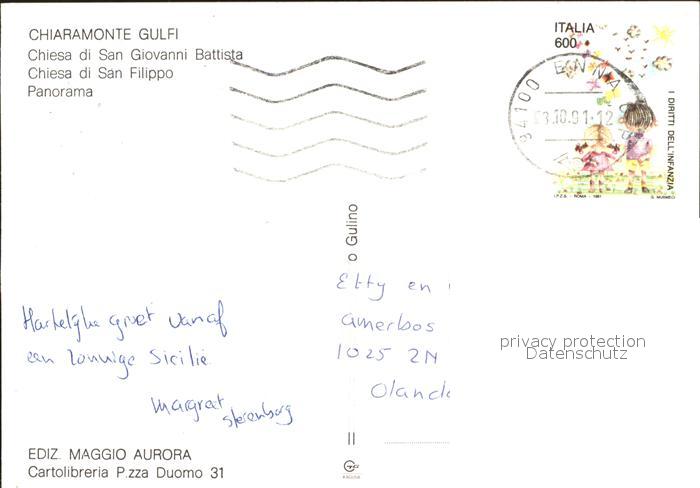 CHIARAMONTE GULFI
Chiesa di San Giovanni Battista
Chiesa di San Filippo
Panorama
ITALIA
600
94100 ENNA
03.10.91-12
I DIRITTI DELL'INFANZIA
I.P.Z.S. - ROMA - 1991
o Gulino
Hartelijke groet vanaf
een zonnige Sicilie
Margreet
Steienborg
Etty en
Amerbos
1025 ZN
Olanda
privacy protection
Datenschutz
EDIZ. MAGGIO AURORA
Cartolibreria P.zza Duomo 31
RAGUSA